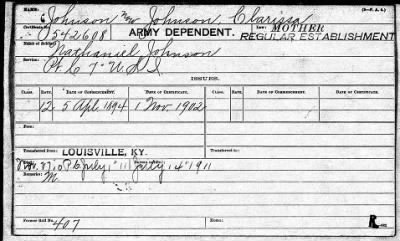 NAME: Johnson now Johnson, Clarissa (D.—F. A. I.)
Certificate No. 542608 ARMY DEPENDENT. Law: MOTHER
REGULAR ESTABLISHMENT
Name of Soldier:
Nathaniel Johnson
Service:
Pt C 7" U.S.I.
ISSUES.
CLASS. DATE OF COMMENCEMENT. DATE OF CERTIFICATE. CLASS. DATE OF COMMENCEMENT. DATE OF CERTIFICATE.
12 5 Apl. 1894 1 Nov 1902
From: From:
Transferred from: LOUISVILLE, KY. Transferred to:
July 1" 11 July 4" 1911
Remarks: M
Former Roll No. Home:
407 R